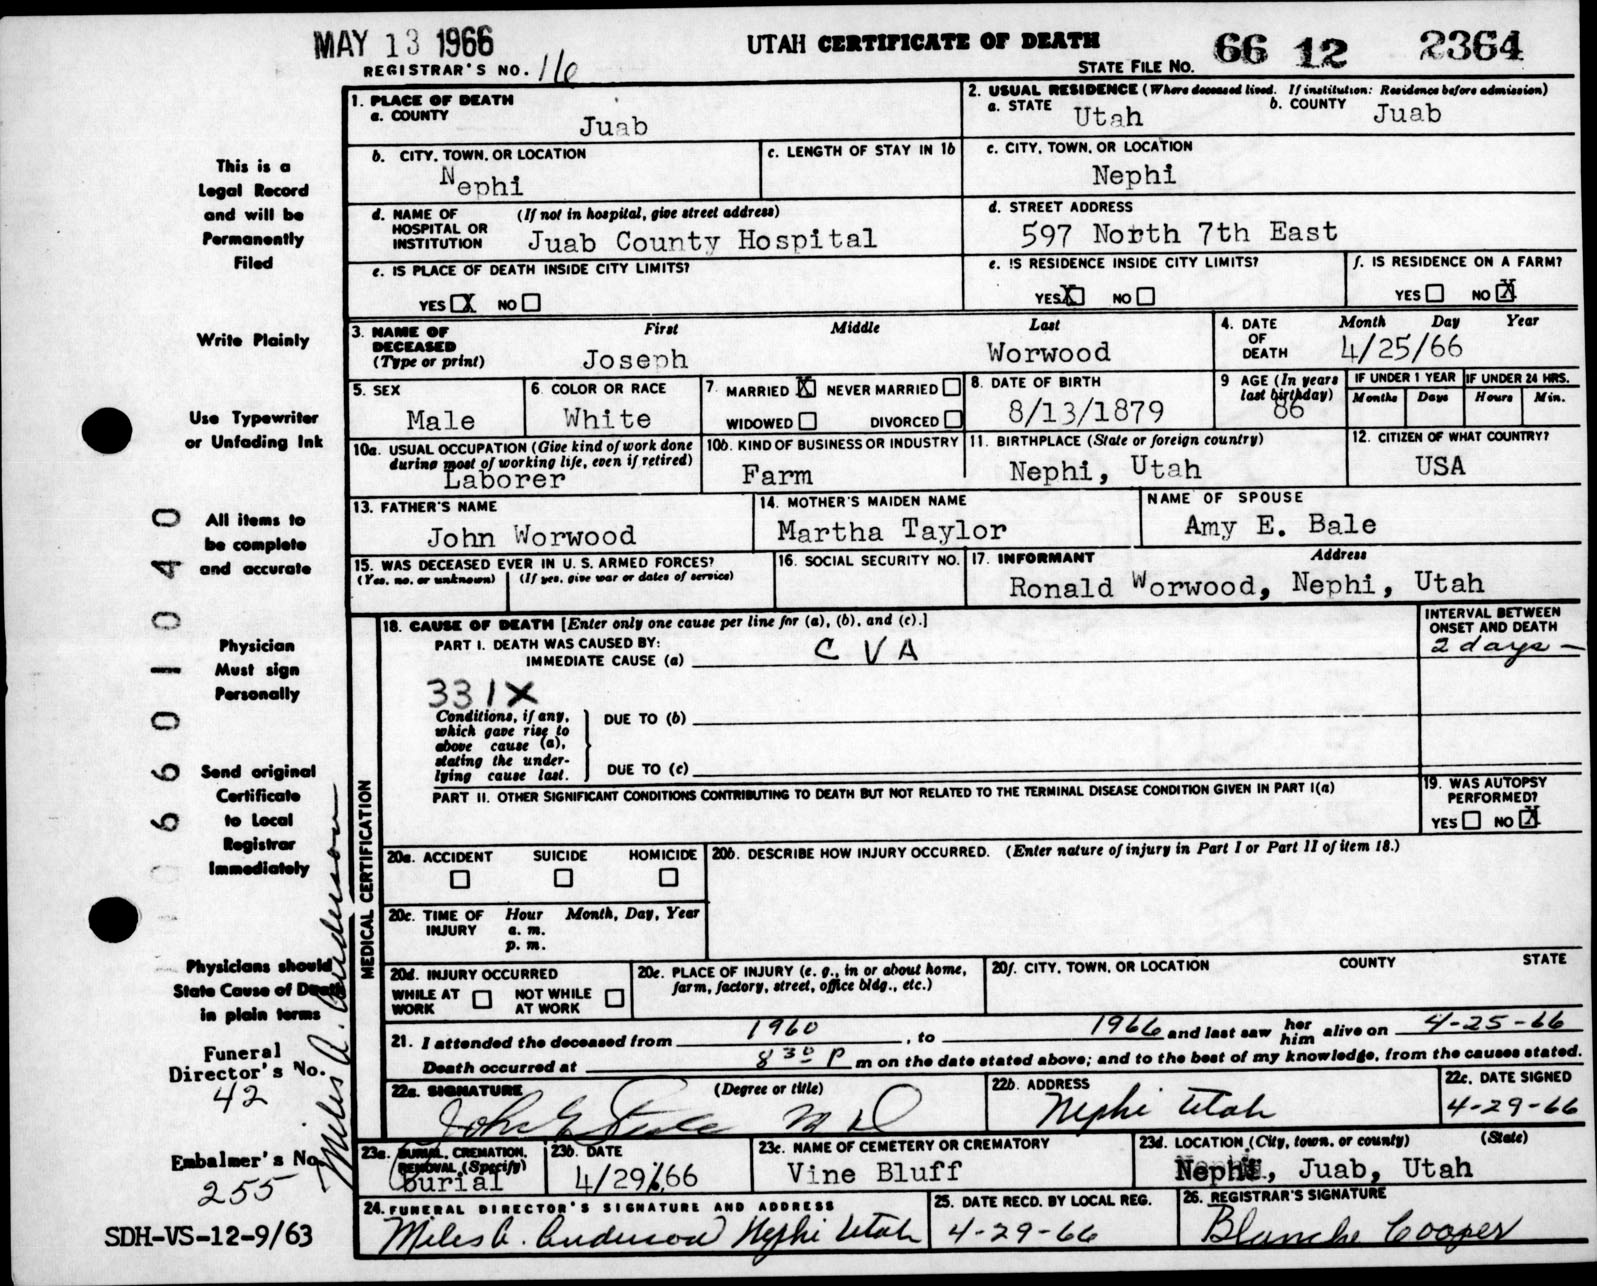 MAY 13 1966
UTAH CERTIFICATE OF DEATH
66 12 2364
REGISTRAR'S NO. 116
STATE FILE NO.
This is a
Legal Record
and will be
Permanently
Filed
Write Plainly
Use Typewriter
or Unfading Ink
All items to
be complete
and accurate
Physician
Must sign
Personally
Send original
Certificate
to Local
Registrar
Immediately
Physicians should
State Cause of Death
in plain terms
Funeral
Director's No.
42
Embalmer's No.
255
SDH-VS-12-9/63
Miles A. Anderson
0660 10 40
1. PLACE OF DEATH
a. COUNTY
Juab
2. USUAL RESIDENCE (Where deceased lived. If institution: Residence before admission)
a. STATE Utah b. COUNTY Juab
b. CITY, TOWN, OR LOCATION
Nephi
c. LENGTH OF STAY IN 1b
c. CITY, TOWN, OR LOCATION
Nephi
d. NAME OF HOSPITAL OR INSTITUTION (If not in hospital, give street address)
Juab County Hospital
d. STREET ADDRESS
597 North 7th East
e. IS PLACE OF DEATH INSIDE CITY LIMITS?
YES X NO
e. IS RESIDENCE INSIDE CITY LIMITS?
YES X NO
f. IS RESIDENCE ON A FARM?
YES NO X
3. NAME OF DECEASED (Type or print) First Middle Last
Joseph Worwood
4. DATE OF DEATH Month Day Year
4/25/66
5. SEX
Male
6. COLOR OR RACE
White
7. MARRIED X NEVER MARRIED
WIDOWED DIVORCED
8. DATE OF BIRTH
8/13/1879
9 AGE (In years last birthday)
86
IF UNDER 1 YEAR
Months Days
IF UNDER 24 HRS.
Hours Min.
10a. USUAL OCCUPATION (Give kind of work done during most of working life, even if retired)
Laborer
10b. KIND OF BUSINESS OR INDUSTRY
Farm
11. BIRTHPLACE (State or foreign country)
Nephi, Utah
12. CITIZEN OF WHAT COUNTRY?
USA
13. FATHER'S NAME
John Worwood
14. MOTHER'S MAIDEN NAME
Martha Taylor
NAME OF SPOUSE
Amy E. Bale
15. WAS DECEASED EVER IN U. S. ARMED FORCES?
(Yes, no, or unknown) (If yes, give war or dates of service)
16. SOCIAL SECURITY NO.
17. INFORMANT Address
Ronald Worwood, Nephi, Utah
MEDICAL CERTIFICATION
18. CAUSE OF DEATH [Enter only one cause per line for (a), (b), and (c).]
INTERVAL BETWEEN ONSET AND DEATH
PART I. DEATH WAS CAUSED BY:
IMMEDIATE CAUSE (a) CVA
2 days -
331X
Conditions, if any,
which gave rise to
above cause (a),
stating the under-
lying cause last.
DUE TO (b)
DUE TO (c)
PART II. OTHER SIGNIFICANT CONDITIONS CONTRIBUTING TO DEATH BUT NOT RELATED TO THE TERMINAL DISEASE CONDITION GIVEN IN PART I(a)
19. WAS AUTOPSY PERFORMED?
YES NO X
20a. ACCIDENT SUICIDE HOMICIDE
20b. DESCRIBE HOW INJURY OCCURRED. (Enter nature of injury in Part I or Part II of item 18.)
20c. TIME OF INJURY Hour Month, Day, Year
a. m.
p. m.
20d. INJURY OCCURRED
WHILE AT WORK NOT WHILE AT WORK
20e. PLACE OF INJURY (e. g., in or about home, farm, factory, street, office bldg., etc.)
20f. CITY, TOWN, OR LOCATION COUNTY STATE
21. I attended the deceased from 1960, to 1966 and last saw her him alive on 4-25-66
Death occurred at 8 30 P m on the date stated above; and to the best of my knowledge, from the causes stated.
22a. SIGNATURE (Degree or title)
John G Steele MD
22b. ADDRESS
Nephi Utah
22c. DATE SIGNED
4-29-66
23a. BURIAL, CREMATION, REMOVAL (Specify)
burial
23b. DATE
4/29/66
23c. NAME OF CEMETERY OR CREMATORY
Vine Bluff
23d. LOCATION (City, town, or county) (State)
Nephi, Juab, Utah
24. FUNERAL DIRECTOR'S SIGNATURE AND ADDRESS
Miles A. Anderson Nephi Utah
25. DATE RECD. BY LOCAL REG.
4-29-66
26. REGISTRAR'S SIGNATURE
Blanche Cooper